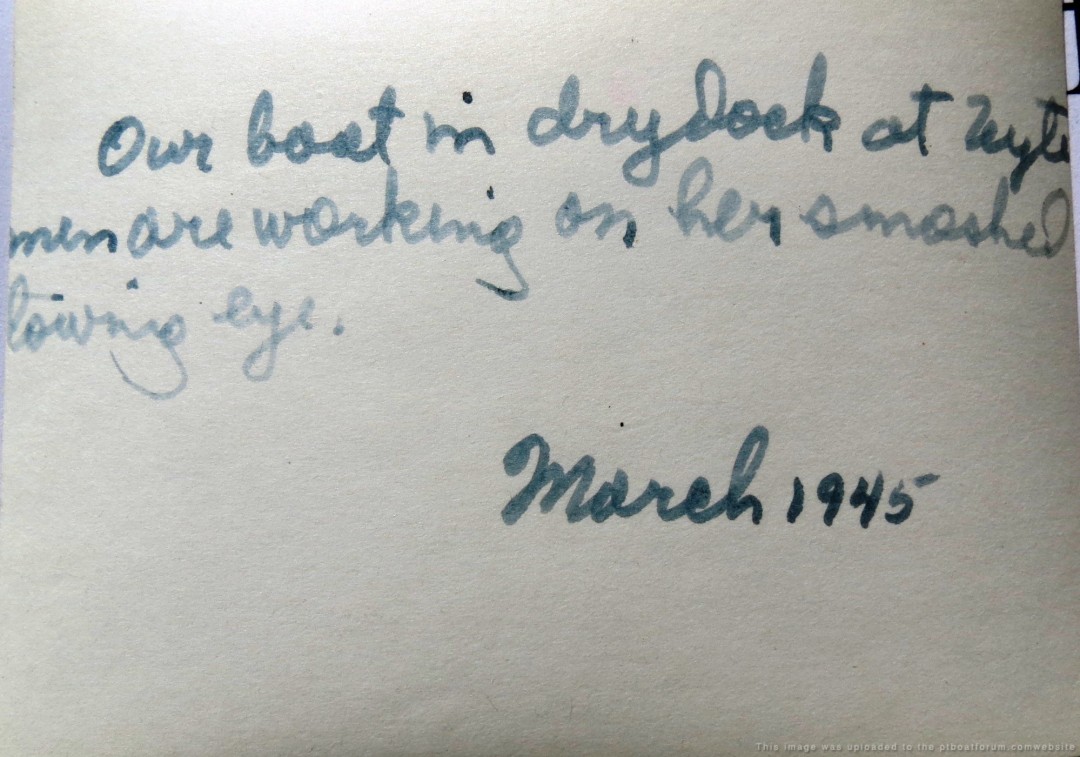 Our boat in drydock at Leyte
men are working on her smashed
towing eye.
March 1945
This image was uploaded to the ptboatforum.comwebsite